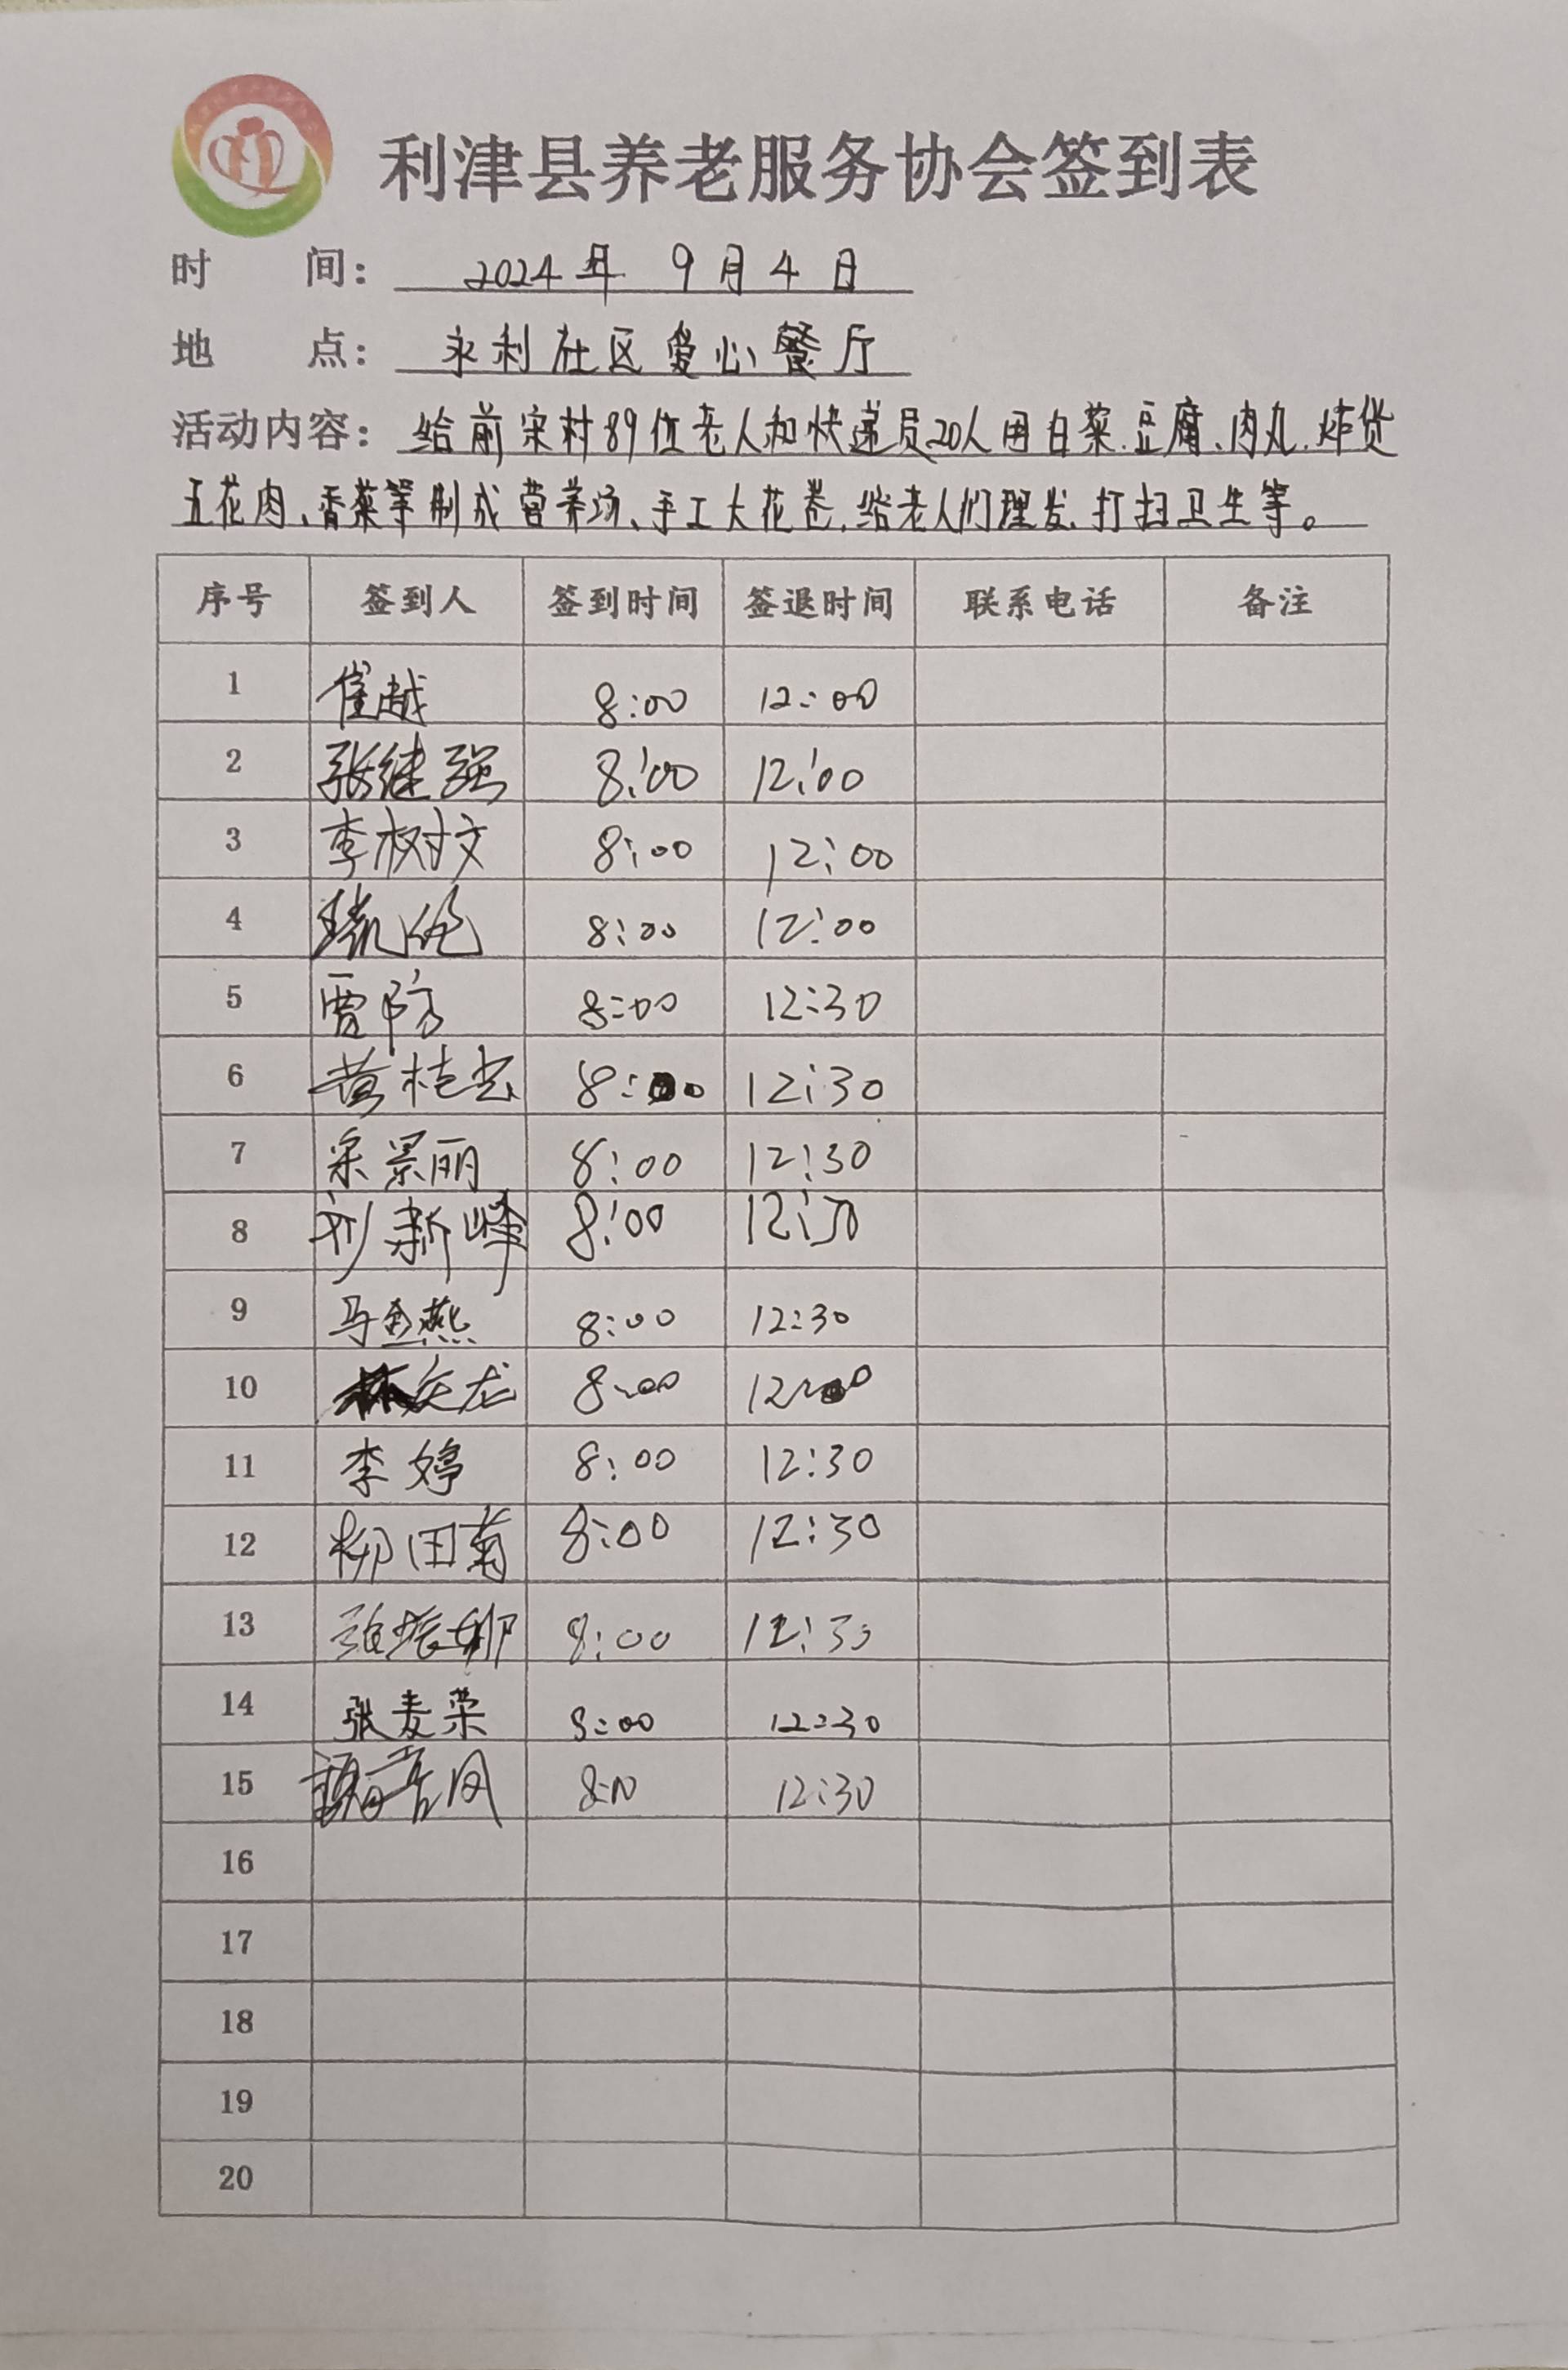 利津县养老服务协会签到表
时 间: 2024年 9月4日
地 点: 永利社区爱心餐厅
活动内容: 给前宋村89位老人和快递员20人用白菜、豆腐、肉丸、炸货
五花肉、香菜等制成营养汤、手工大花卷、给老人们理发、打扫卫生等。
序号 签到人 签到时间 签退时间 联系电话 备注
1 崔越 8:00 12:00
2 张继强 8:00 12:00
3 李树文 8:00 12:00
4 8:00 12:00
5 贾防 8:00 12:30
6 黄桂云 8:00 12:30
7 宋景丽 8:00 12:30
8 刘新峰 8:00 12:30
9 马金燕 8:00 12:30
10 8:00
11 李婷 8:00 12:30
12 柳田菊 8:00 12:30
13 张振娜 8:00 12:30
14 张麦荣 8:00 12:30
15 12:30
16
17
18
19
20